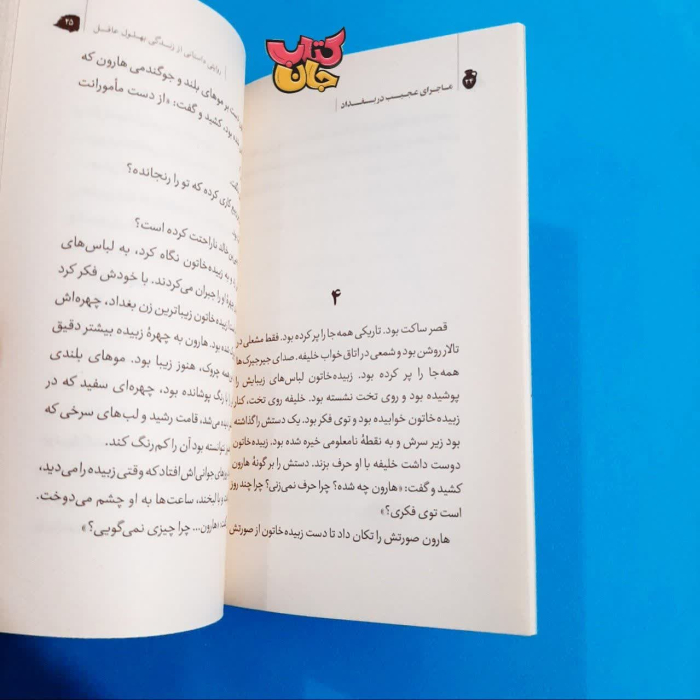 کتاب
جان
ماجرای عجیب در بغداد
۲۴
۴
قصر ساکت بود. تاریکی همه‌جا را پر کرده بود. فقط مشعلی در
تالار روشن بود و شمعی در اتاق خواب خلیفه. صدای جیرجیرک‌ها
همه‌جا را پر کرده بود. زبیده‌خاتون لباس‌های زیبایش را
پوشیده بود و روی تخت نشسته بود. خلیفه روی تخت، کنار
زبیده‌خاتون خوابیده بود و توی فکر بود. یک دستش را گذاشته
بود زیر سرش و به نقطهٔ نامعلومی خیره شده بود. زبیده‌خاتون
دوست داشت خلیفه با او حرف بزند. دستش را بر گونهٔ هارون
کشید و گفت: «هارون چه شده؟ چرا حرف نمی‌زنی؟ چرا چند روز
است توی فکری؟»
هارون صورتش را تکان داد تا دست زبیده‌خاتون از صورتش
روایتی داستانی از زندگی بهلول عاقل
۲۵
بر موهای بلند و جوگندمی هارون که
بود، کشید و گفت: «از دست مأمورانت
کاری کرده که تو را رنجانده؟
خالد ناراحتت کرده است؟
و به زبیده‌خاتون نگاه کرد، به لباس‌های
او را جبران می‌کردند. با خودش فکر کرد
زبیده‌خاتون زیباترین زن بغداد، چهره‌اش
بود. هارون به چهرهٔ زبیده بیشتر دقیق
چروک، هنوز زیبا بود. موهای بلندی
با رنگ پوشانده بود، چهره‌ای سفید که در
می‌شد، قامت رشید و لب‌های سرخی که
نتوانسته بود آن را کم‌رنگ کند.
جوانی‌اش افتاد که وقتی زبیده را می‌دید،
با لبخند، ساعت‌ها به او چشم می‌دوخت.
«هارون... چرا چیزی نمی‌گویی؟»